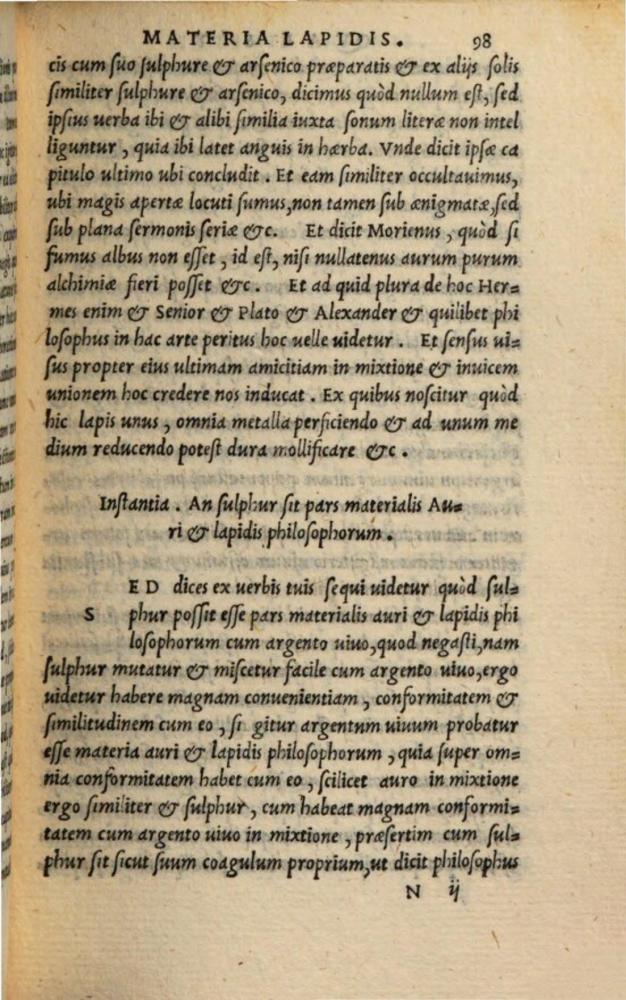 MATERIA LAPIDIS. 98
cis cum ſuo ſulphure & arſenico præparatis & ex alijs ſolis
ſimiliter ſulphure & arſenico, dicimus quòd nullum eſt, ſed
ipſius uerba ibi & alibi ſimilia iuxta ſonum literæ non intel
liguntur, quia ibi latet anguis in hærba. Vnde dicit ipſæ ca
pitulo ultimo ubi concludit. Et eam ſimiliter occultauimus,
ubi magis apertæ locuti ſumus, non tamen ſub ænigmatæ, ſed
ſub plana ſermonis ſeriæ &c. Et dicit Morienus, quòd ſi
fumus albus non eſſet, id eſt, niſi nullatenus aurum purum
alchimiæ fieri poſſet &c. Et ad quid plura de hoc Her=
mes enim & Senior & Plato & Alexander & quilibet phi
loſophus in hac arte peritus hoc uelle uidetur. Et ſenſus ui=
ſus propter eius ultimam amicitiam in mixtione & inuicem
unionem hoc credere nos inducat. Ex quibus noſcitur quòd
hic lapis unus, omnia metalla perficiendo & ad unum me
dium reducendo poteſt dura mollificare &c.
Inſtantia. An ſulphur ſit pars materialis Au=
ri & lapidis philoſophorum.
S ED dices ex uerbis tuis ſequi uidetur quòd ſul=
phur poſſit eſſe pars materialis auri & lapidis phi
loſophorum cum argento uiuo, quod negaſti, nam
ſulphur mutatur & miſcetur facile cum argento uiuo, ergo
uidetur habere magnam conuenientiam, conformitatem &
ſimilitudinem cum eo, ſi gitur argentum uiuum probatur
eſſe materia auri & lapidis philoſophorum, quia ſuper om=
nia conformitatem habet cum eo, ſcilicet auro in mixtione
ergo ſimiliter & ſulphur, cum habeat magnam conformi=
tatem cum argento uiuo in mixtione, præſertim cum ſul=
phur ſit ſicut ſuum coagulum proprium, ut dicit philoſophus
N ij